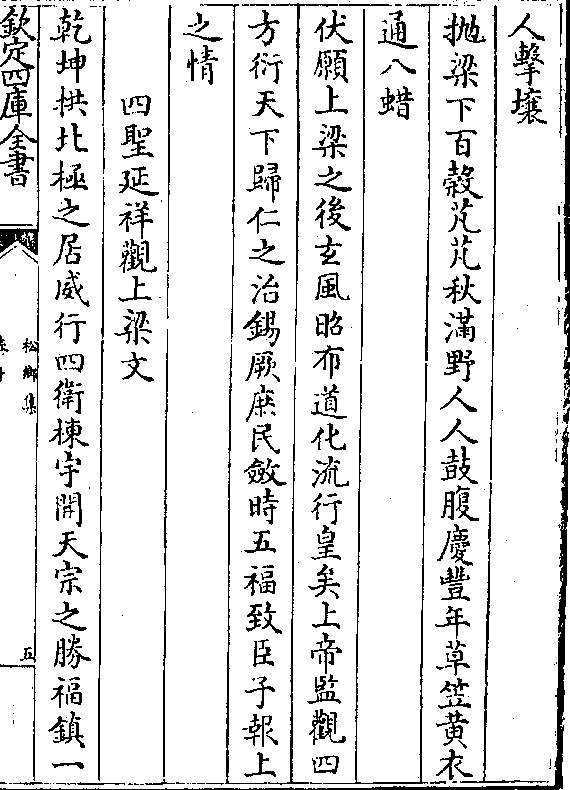 人擊壤
抛梁下百穀芃芃秋滿野人人鼓腹慶豐年草笠黄衣
通八蜡
伏願上梁之後玄風昭布道化流行皇矣上帝監觀四
方衍天下歸仁之治錫厥庶民斂時五福致臣子報上
之情
四聖延祥觀上梁文
乾坤拱北極之居威行四衛棟宇開天宗之勝福鎮一
欽定四庫全書
松鄉集
五